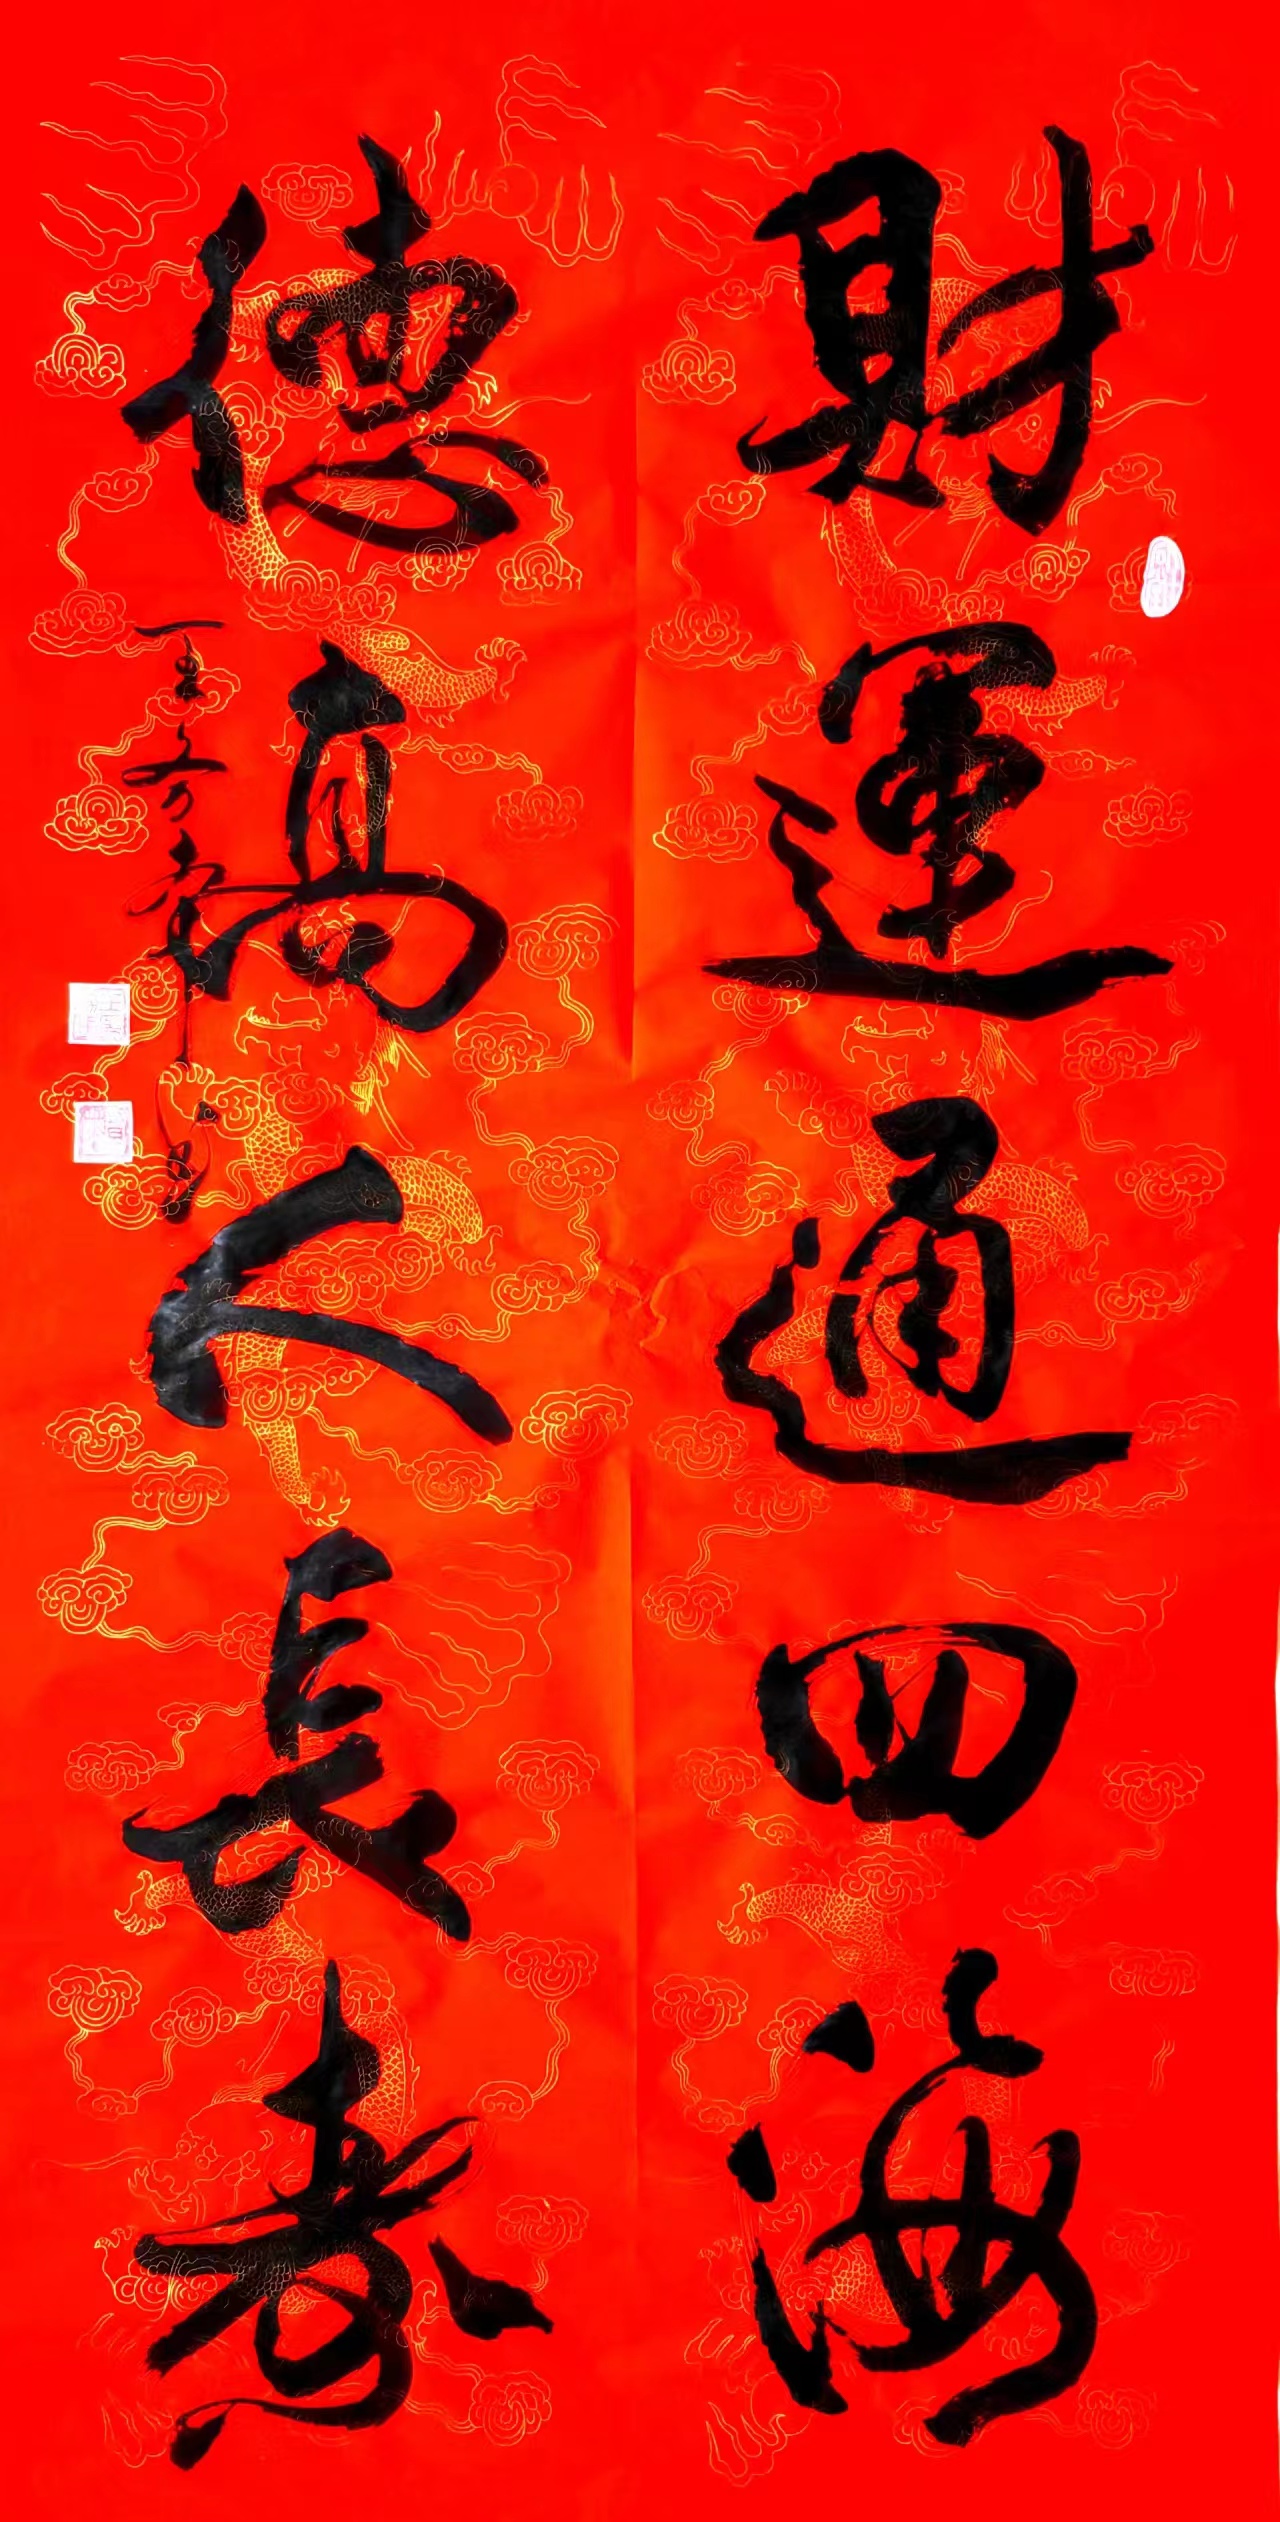 財運通四海
德高人長壽